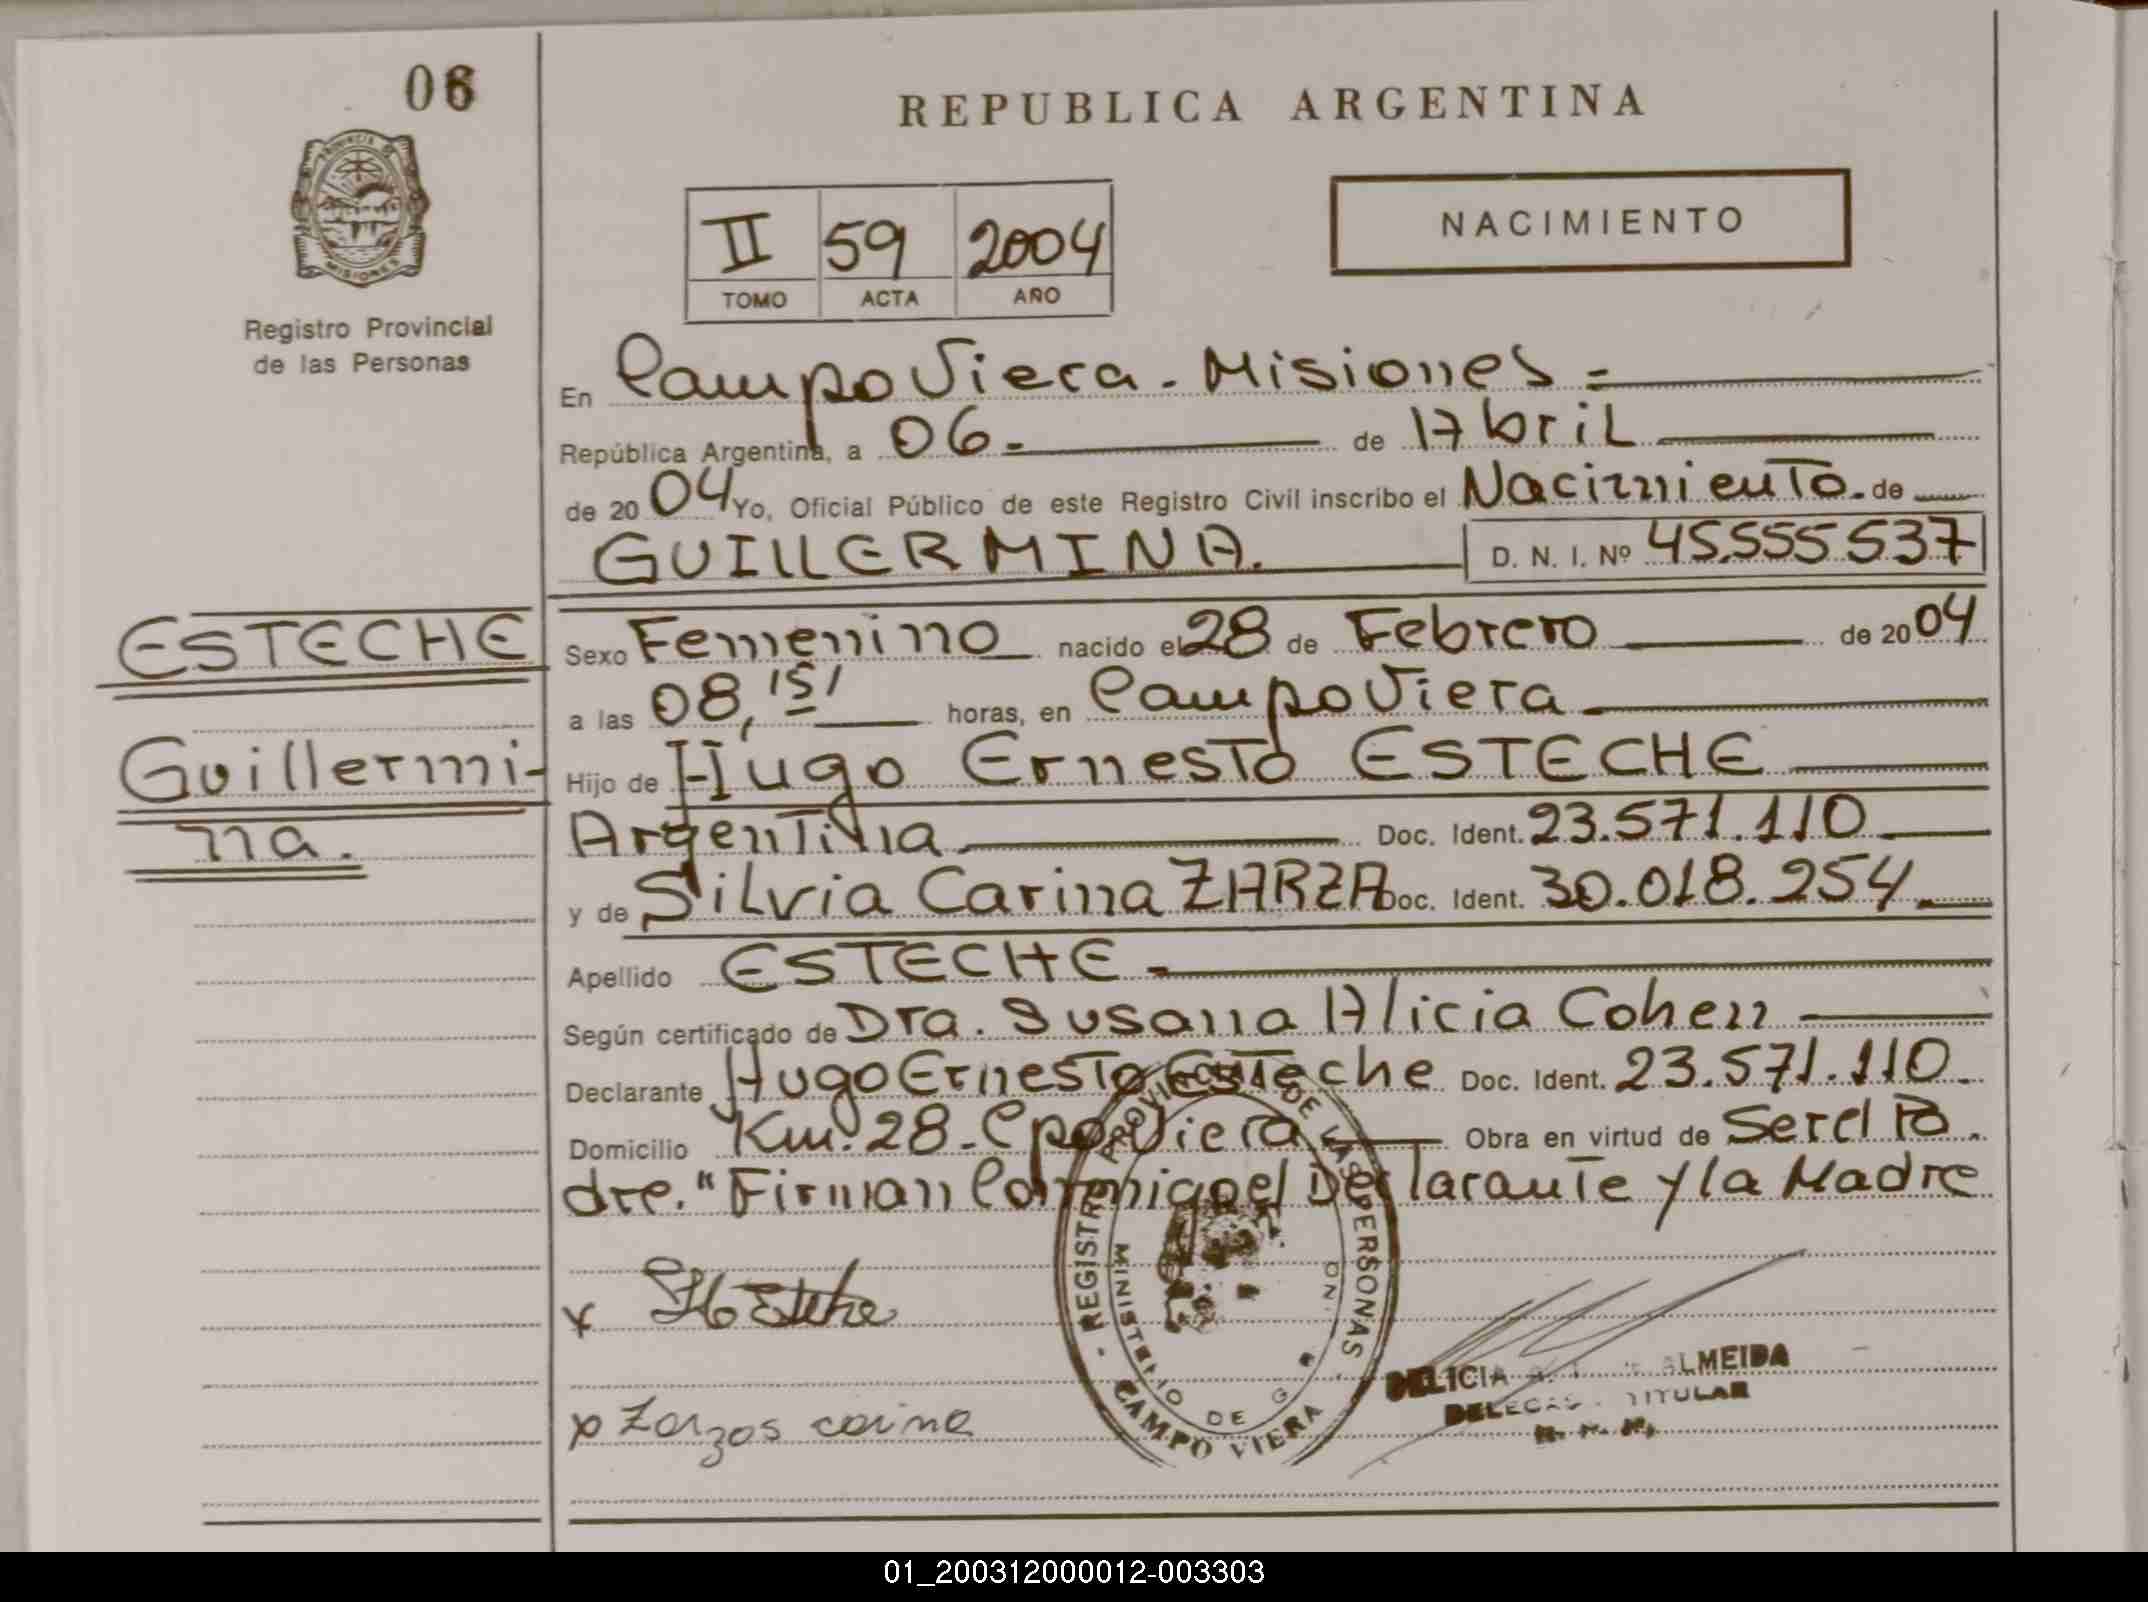 06
REPUBLICA ARGENTINA
PROVINCIA DE
MISIONES
Registro Provincial
de las Personas
II 59 2004
TOMO ACTA AÑO
NACIMIENTO
En Campo Viera - Misiones =
República Argentina, a 06.- de Abril
de 2004 Yo, Oficial Público de este Registro Civil inscribo el Nacimiento. de
GUILLERMINA. D. N. I. Nº 45.555.537
ESTECHE
Guillermi-
na.
Sexo Femenino nacido el 28 de Febrero de 2004
a las 08,15' horas, en Campo Viera
Hijo de Hugo Ernesto ESTECHE
Argentina Doc. Ident. 23.571.110
y de Silvia Carina ZARZA Doc. Ident. 30.018.254
Apellido ESTECHE
Según certificado de Dra. Susana Alicia Cohen
Declarante Hugo Ernesto Esteche Doc. Ident. 23.571.110
Domicilio Km. 28 - Cpo Viera Obra en virtud de Ser el Pa
dre." Firman Conmigo el Declarante y la Madre
x Esteche
x Zarzos carina
REGISTRO PROVINCIAL DE LAS PERSONAS
MINISTERIO DE G
CAMPO VIERA
DELICIA ALMEIDA
TITULAR
01_200312000012-003303